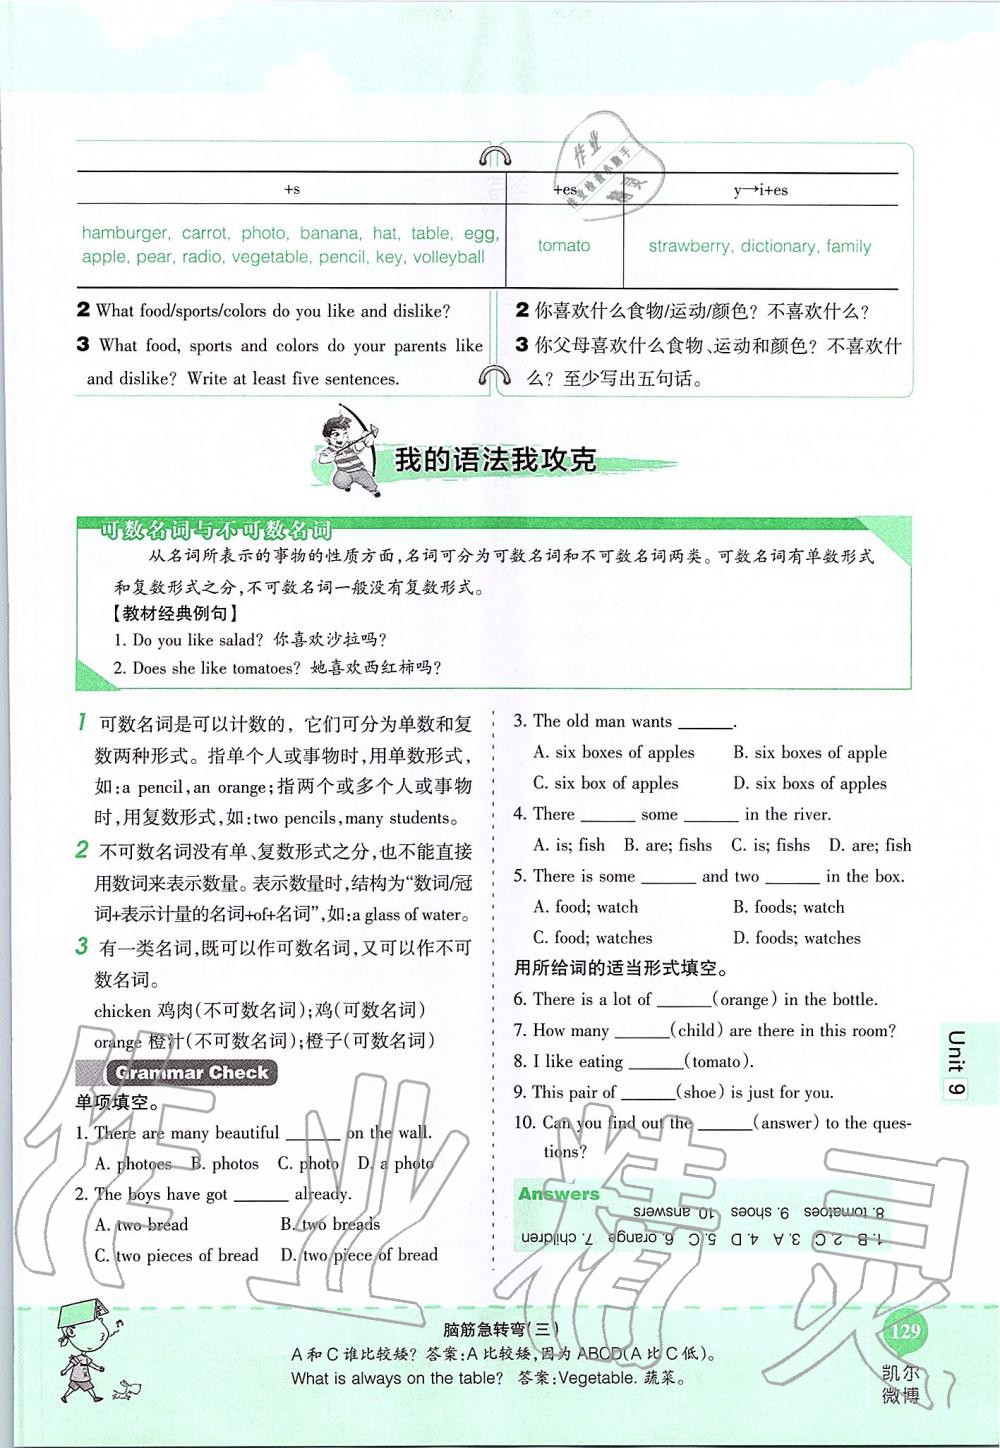 +s +es y→i+es
hamburger, carrot, photo, banana, hat, table, egg,
apple, pear, radio, vegetable, pencil, key, volleyball
tomato
strawberry, dictionary, family
2 What food/sports/colors do you like and dislike?
3 What food, sports and colors do your parents like
and dislike? Write at least five sentences.
2 你喜欢什么食物/运动/颜色? 不喜欢什么?
3 你父母喜欢什么食物、运动和颜色? 不喜欢什
么? 至少写出五句话。
我的语法我攻克
可数名词与不可数名词
从名词所表示的事物的性质方面,名词可分为可数名词和不可数名词两类。可数名词有单数形式
和复数形式之分,不可数名词一般没有复数形式。
【教材经典例句】
1. Do you like salad? 你喜欢沙拉吗?
2. Does she like tomatoes? 她喜欢西红柿吗?
1 可数名词是可以计数的, 它们可分为单数和复
数两种形式。指单个人或事物时,用单数形式,
如:a pencil,an orange;指两个或多个人或事物
时,用复数形式,如:two pencils,many students。
2 不可数名词没有单、复数形式之分,也不能直接
用数词来表示数量。表示数量时,结构为“数词/冠
词+表示计量的名词+of+名词”,如:a glass of water。
3 有一类名词,既可以作可数名词,又可以作不可
数名词。
chicken 鸡肉(不可数名词);鸡(可数名词)
orange 橙汁(不可数名词);橙子(可数名词)
Grammar Check
单项填空。
1. There are many beautiful ______ on the wall.
A. photoes B. photos C. photo D. a photo
2. The boys have got ______ already.
A. two bread B. two breads
C. two pieces of bread D. two piece of bread
3. The old man wants ______.
A. six boxes of apples B. six boxes of apple
C. six box of apples D. six boxs of apples
4. There ______ some ______ in the river.
A. is; fish B. are; fishs C. is; fishs D. are; fish
5. There is some ______ and two ______ in the box.
A. food; watch B. foods; watch
C. food; watches D. foods; watches
用所给词的适当形式填空。
6. There is a lot of ______(orange) in the bottle.
7. How many ______(child) are there in this room?
8. I like eating ______(tomato).
9. This pair of ______(shoe) is just for you.
10. Can you find out the ______(answer) to the ques-
tions?
Answers
1. B 2. C 3. A 4. D 5. C 6. orange 7. children
8. tomatoes 9. shoes 10. answers
Unit 9
脑筋急转弯(三)
A 和 C 谁比较矮? 答案:A 比较矮,因为 ABCD(A 比 C 低)。
What is always on the table? 答案:Vegetable. 蔬菜。
129
凯尔
微博
作业精灵